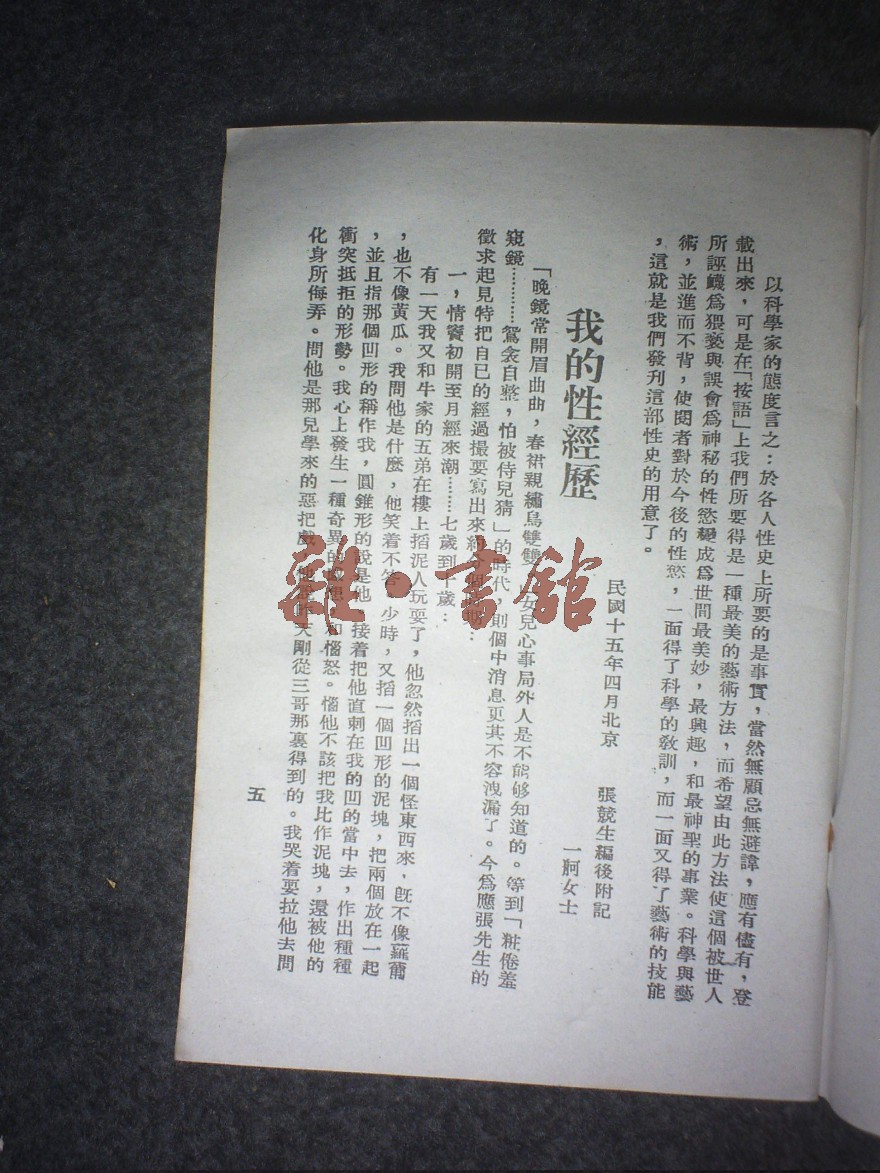 以科學家的態度言之：於各人性史上所要的是事實，當然無顧忌無避諱，應有儘有，登
載出來，可是在「按語」上我們所要得是一種最美的藝術方法，而希望由此方法使這個被世人
所誣衊爲猥褻與誤會爲神秘的性慾變成爲世間最美妙，最興趣，和最神聖的事業。科學與藝
術，並進而不背，使閱者對於今後的性慾，一面得了科學的敎訓，而一面又得了藝術的技能
，這就是我們發刊這部性史的用意了。
民國十五年四月北京　張競生編後附記
我的性經歷
一舸女士
「晚鏡常開眉曲曲，春裙親繡鳥雙雙」女兒心事局外人是不能够知道的。等到「粧倦羞
窺鏡…………鴛衾自整，怕被侍兒猜」的時代，則個中消息更其不容洩漏了。今爲應張先生的
徵求起見特把自已的經過撮要寫出來
一，情竇初開至月經來潮………七歲到十歲：
有一天我又和牛家的五弟在樓上搯泥人玩耍了，他忽然搯出一個怪東西來，旣不像羅蔔
，也不像黃瓜。我問他是什麼，他笑着不答，少時，又搯一個凹形的泥塊，把兩個放在一起
，並且指那個凹形的稱作我，圓錐形的說是他，接着把他直刺在我的凹的當中去，作出種種
衝突抵拒的形勢。我心上發生一種奇異的和惱怒。惱他不該把我比作泥塊，還被他的
化身所侮弄。問他是那兒學來的惡把戲，昨天剛從三哥那裏得到的。我哭着要拉他去問
五
雜·書館